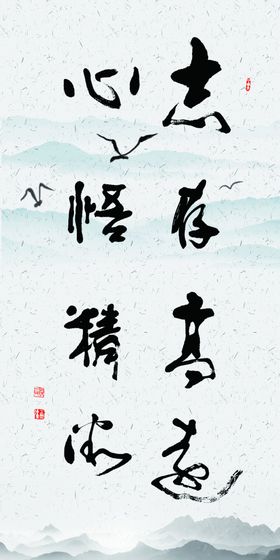 志存高遠
心悟精微